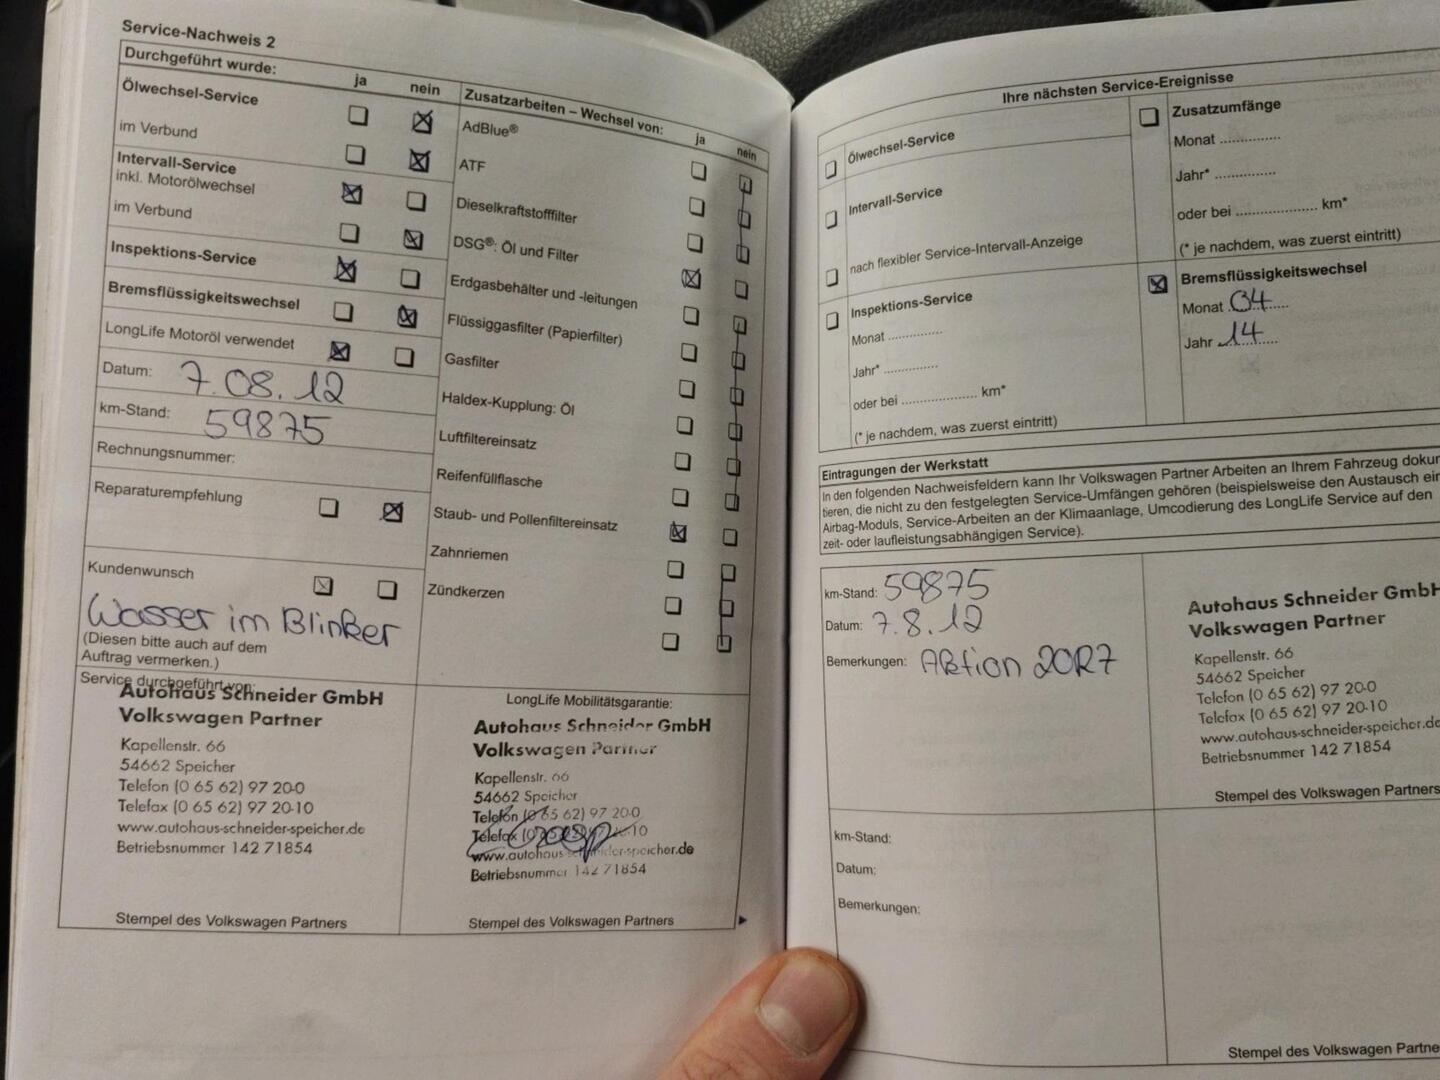 Service-Nachweis 2
Durchgeführt wurde: ja nein
Ölwechsel-Service
im Verbund
Intervall-Service
inkl. Motorölwechsel
im Verbund
Inspektions-Service
Bremsflüssigkeitswechsel
LongLife Motoröl verwendet
Datum: 7.08.12
km-Stand: 59875
Rechnungsnummer:
Reparaturempfehlung
Kundenwunsch
Wasser im Blinker
(Diesen bitte auch auf dem
Auftrag vermerken.)
Service durchgeführt von:
Autohaus Schneider GmbH
Volkswagen Partner
Kapellenstr. 66
54662 Speicher
Telefon (0 65 62) 97 20-0
Telefax (0 65 62) 97 20-10
www.autohaus-schneider-speicher.de
Betriebsnummer 142 71854
Stempel des Volkswagen Partners
Zusatzarbeiten – Wechsel von: ja nein
AdBlue®
ATF
Dieselkraftstofffilter
DSG®: Öl und Filter
Erdgasbehälter und -leitungen
Flüssiggasfilter (Papierfilter)
Gasfilter
Haldex-Kupplung: Öl
Luftfiltereinsatz
Reifenfüllflasche
Staub- und Pollenfiltereinsatz
Zahnriemen
Zündkerzen
LongLife Mobilitätsgarantie:
Autohaus Schneider GmbH
Volkswagen Partner
Kapellenstr. 66
54662 Speicher
Telefon (0 65 62) 97 20-0
Telefax (0 65 62) 97 20-10
www.autohaus-schneider-speicher.de
Betriebsnummer 142 71854
Stempel des Volkswagen Partners
Ihre nächsten Service-Ereignisse
Ölwechsel-Service
Intervall-Service
nach flexibler Service-Intervall-Anzeige
Inspektions-Service
Monat ..............
Jahr* ..............
oder bei .................... km*
(* je nachdem, was zuerst eintritt)
Zusatzumfänge
Monat ..............
Jahr* ..............
oder bei .................... km*
(* je nachdem, was zuerst eintritt)
Bremsflüssigkeitswechsel
Monat 04
Jahr 14
Eintragungen der Werkstatt
In den folgenden Nachweisfeldern kann Ihr Volkswagen Partner Arbeiten an Ihrem Fahrzeug doku
tieren, die nicht zu den festgelegten Service-Umfängen gehören (beispielsweise den Austausch ei
Airbag-Moduls, Service-Arbeiten an der Klimaanlage, Umcodierung des LongLife Service auf den
zeit- oder laufleistungsabhängigen Service).
km-Stand: 59875
Datum: 7.8.12
Bemerkungen: Aktion 20R7
Autohaus Schneider GmbH
Volkswagen Partner
Kapellenstr. 66
54662 Speicher
Telefon (0 65 62) 97 20-0
Telefax (0 65 62) 97 20-10
www.autohaus-schneider-speicher.de
Betriebsnummer 142 71854
Stempel des Volkswagen Partners
km-Stand:
Datum:
Bemerkungen:
Stempel des Volkswagen Partne